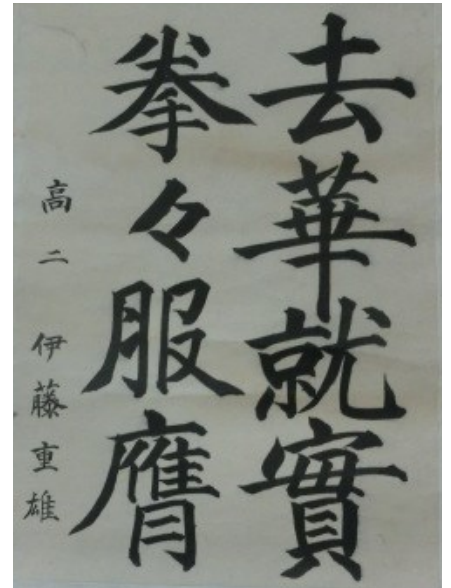 去華就實
拳々服膺
高二 伊藤重雄